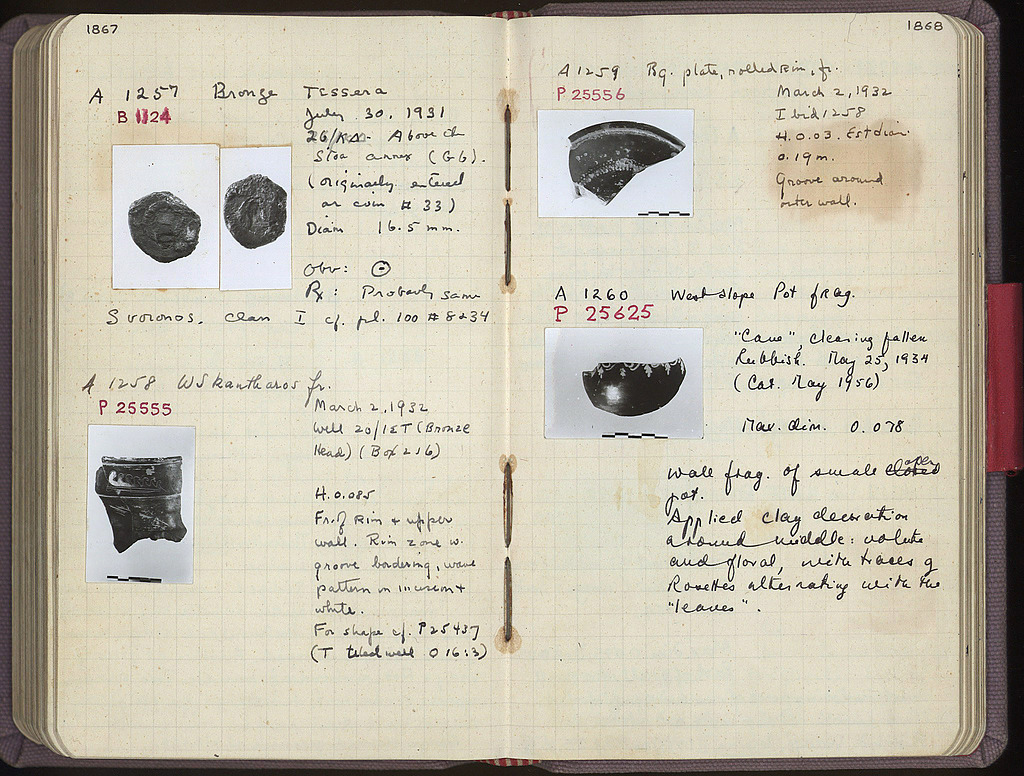 1867
A 1257 Bronze Tessera
B 1124
July 30, 1931
26/ΚΔ - Above the
Stoa annex (G6).
(originally entered
as coin # 33)
Diam 16.5 mm.
Obv: ⊙
Rx: Probably same
Svoronos, class I cf. pl. 100 # 8234
A 1258 WS kantharos fr.
P 25555
March 2, 1932
Well 20/ (Bronze
Head) (Box 216)
H. 0.085
Fr. of Rim + upper
wall. Rim zone w.
groove bordering, wave
pattern in incision +
white.
For shape cf. P 25437
(T tiled well O 16:3)
1868
A 1259 Bg. plate, rolled rim, fr.
P 25556
March 2, 1932
Ibid 1258
H. 0.03. Est diam
0.19 m.
Groove around
outer wall.
A 1260 West slope Pot frag.
P 25625
"Cave", clearing fallen
Rubbish. May 25, 1934
(Cat. May 1956)
Max. dim. 0.078
Wall frag. of small closed open
pot.
Applied clay decoration
around middle: volute
and floral, with traces of
Rosettes alternating with the
"leaves".